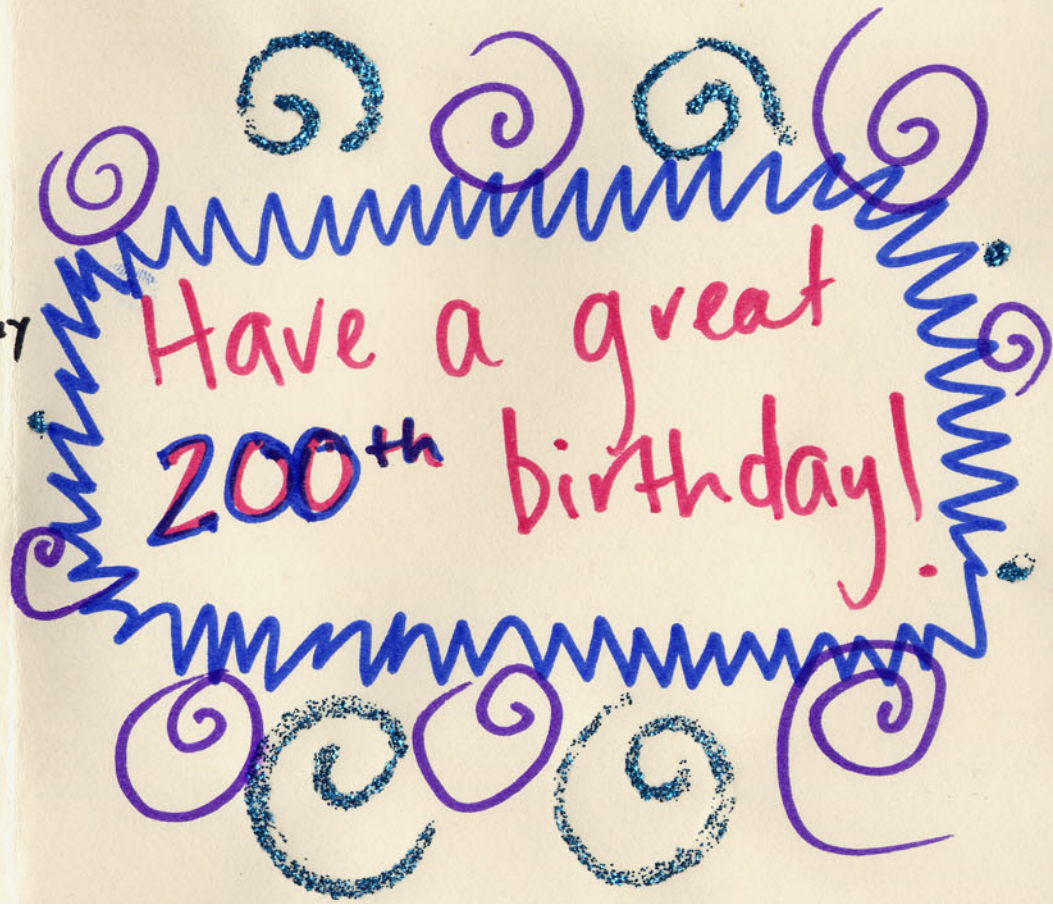 Have a great
200th birthday!